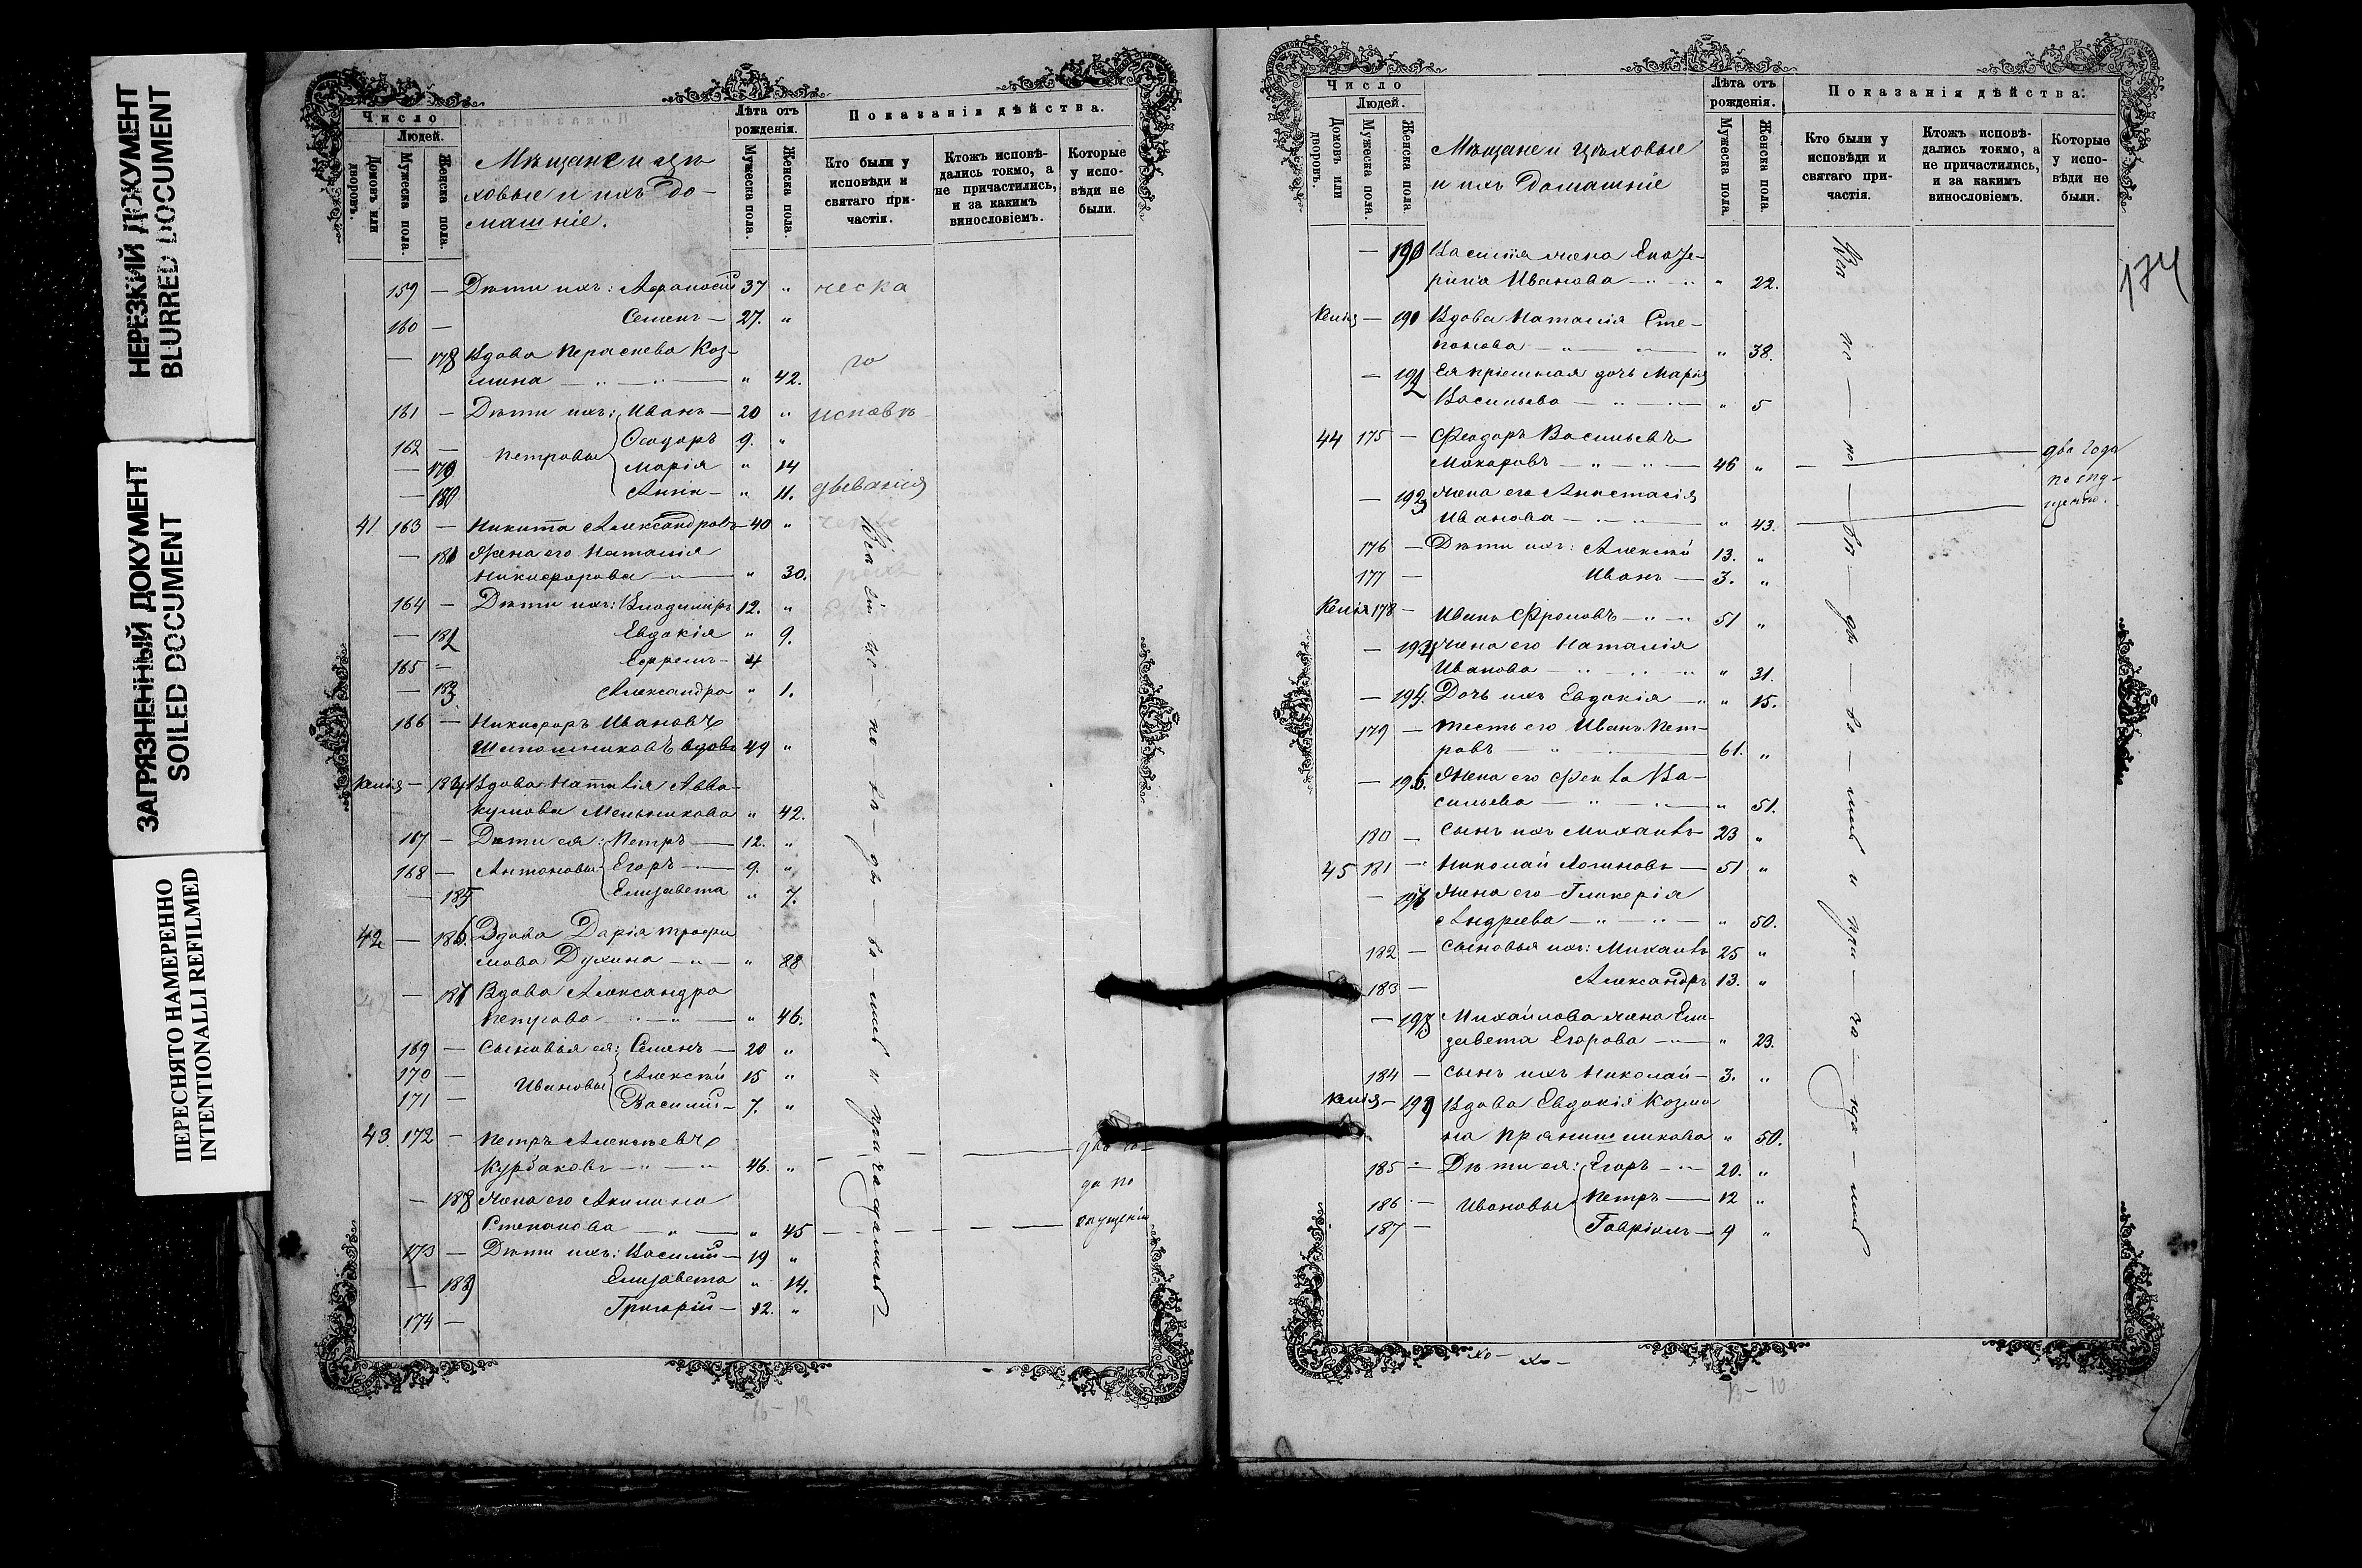 НЕРЕЗКИЙ ДОКУМЕНТ
BLURRED DOCUMENT
ЗАГРЯЗНЕННЫЙ ДОКУМЕНТ
SOILED DOCUMENT
ПЕРЕСНЯТО НАМЕРЕННО
INTENTIONALLI REFILMED
Число
Людей.
Домовъ или дворовъ.
Мужеска пола.
Женска пола.
Мѣщане и цѣ-
ховые и ихъ до-
машніе.
Лѣта отъ рожденія.
Мужеска пола.
Женска пола.
Показанія дѣйства.
Кто были у исповѣди и святаго причастія.
Ктожъ исповѣ-
дались токмо, а
не причастились,
и за какимъ
винословіемъ.
Которые
у испо-
вѣди не
были.
159 — Дѣти ихъ: Афанасій 37 "
160 — Семенъ — 27. "
— 178 Вдова Параскева Коз-
мина — " 42.
161 — Дѣти ихъ: Иванъ — 20 "
162 — Петровы Ѳеодоръ 9. "
— 179 Марія " 14
— 180 Анна — " 11.
41 163 — Никита Александровъ 40 "
— 181 Жена его Наталія
Никифорова — " 30.
164 — Дѣти ихъ: Владиміръ 12. "
— 182 Евдокія " 9.
165 — Ефремъ — 4
— 183 Александра " 1.
166 — Никифоръ Ивановъ
Шапошниковъ вдовъ 49 "
Келія — 184 Вдова Наталія Авва-
кумова Мельникова " 42.
167 — Дѣти ея: Петръ — 12. "
168 — Антоновы Егоръ — 9. "
— 185 Елизавета " 7.
42 — 186 Вдова Дарія Трофи
мова Духина — " 88
— 187 Вдова Александра
Петрова — " 46.
169 — Сыновья ея: Семенъ — 20 "
170 — Ивановы Алексѣй 15 "
171 — Василій — 7. "
43. 172 — Петръ Алексѣевъ
Курбаковъ — 46. "
— 188 Жена его Акилина
Степанова — " 45
два го-
да по
опущенію
173 — Дѣти ихъ: Василій — 19 "
— 189 Елизавета " 14.
174 — Григорій — 12. "
16 - 12
Число
Людей.
Домовъ или дворовъ.
Мужеска пола.
Женска пола.
Мѣщане и цѣховые
и ихъ домашніе
Лѣта отъ
рожденія.
Мужеска пола.
Женска пола.
Показанія дѣйства.
Кто были у
исповѣди и
святаго при-
частія.
Ктожъ исповѣ-
дались токмо, а
не причастились,
и за какимъ
винословіемъ.
Которые
у испо-
вѣди не
были.
174
— 190 Василія жена Екате-
рина Иванова — " 22.
Келія — 191 Вдова Наталія Сте-
панова — " 38.
— 192 Ея пріемная дочь Марія
Васильева — " 5
44 175 — Ѳеодоръ Васильевъ
Макаровъ — 46 "
два года
по опу-
щенію.
— 193 Жена его Анастасія
Иванова — " 43.
176 — Дѣти ихъ: Алексѣй 13. "
177 — Иванъ — 3. "
Келія 178 — Иванъ Фроловъ — 51 "
— 194 Жена его Наталія
Иванова — " 31.
— 195. Дочь ихъ Евдокія — " 15.
179 — Тесть его Иванъ Пет-
ровъ — 61. "
— 196. Жена его Фекла Ва-
сильева — " 51.
180 — Сынъ ихъ Михаилъ 23 "
45 181 — Николай Логиновъ — 51 "
— 197 Жена его Гликерія
Андреева — " 50.
182 — Сыновья ихъ: Михаилъ 25 "
183 — Александръ 13. "
— 198 Михайлова жена Ели-
завета Егорова — " 23.
184 — Сынъ ихъ Николай — 3. "
Келія — 199 Вдова Евдокія Козми
на Прянишникова " 50.
185 — Дѣти ея: Егоръ — 20. "
186 — Ивановы Петръ — 12 "
187 — Гавріилъ — 9 "
13 - 10